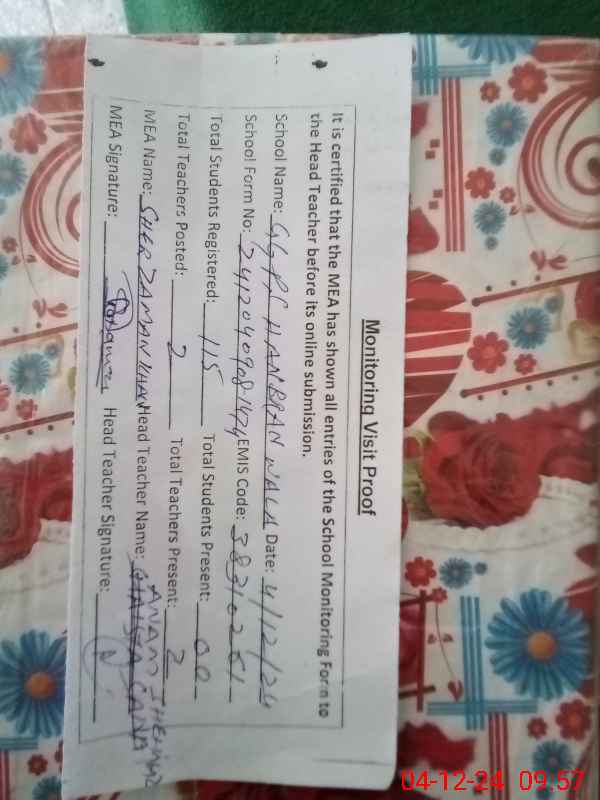 Monitoring Visit Proof
It is certified that the MEA has shown all entries of the School Monitoring Form to
the Head Teacher before its online submission.
School Name: GGPS HANBRAN WALA Date: 4/12/24
School Form No: 241204090814 EMIS Code: 38310261
Total Students Registered: 115 Total Students Present: 00
Total Teachers Posted: 2 Total Teachers Present: 2
MEA Name: SHER ZAMAN KHAN Head Teacher Name: ANAM
MEA Signature: Head Teacher Signature:
04-12-24 09:57